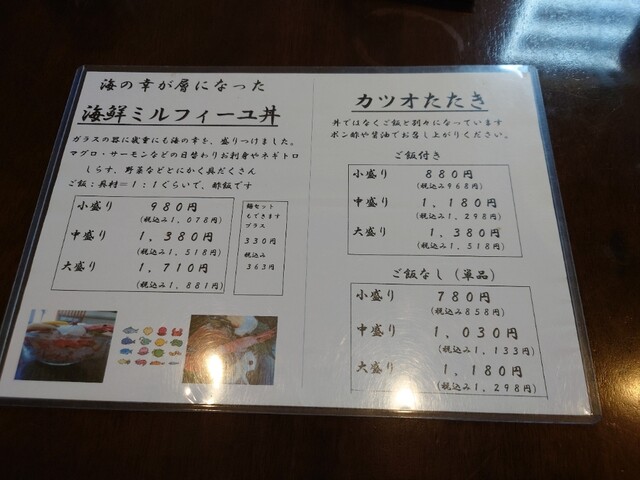 海の幸が層になった
海鮮ミルフィーユ丼
ガラスの器に幾重にも海の幸を、盛りつけました。
マグロ・サーモンなどの日替わりお刺身やネギトロ
しらす、野菜などとにかく具だくさん
ご飯:具材=1:1ぐらいで、酢飯です
小盛り 980円
(税込み1,078円)
中盛り 1,380円
(税込み1,518円)
大盛り 1,710円
(税込み1,881円)
麺セット
もできます
プラス
330円
税込み
363円
カツオたたき
丼ではなくご飯と別々になっています
ポン酢や醤油でお召し上がりください。
ご飯付き
小盛り 880円
(税込み968円)
中盛り 1,180円
(税込み1,298円)
大盛り 1,380円
(税込み1,518円)
ご飯なし(単品)
小盛り 780円
(税込み858円)
中盛り 1,030円
(税込み1,133円)
大盛り 1,180円
(税込み1,298円)